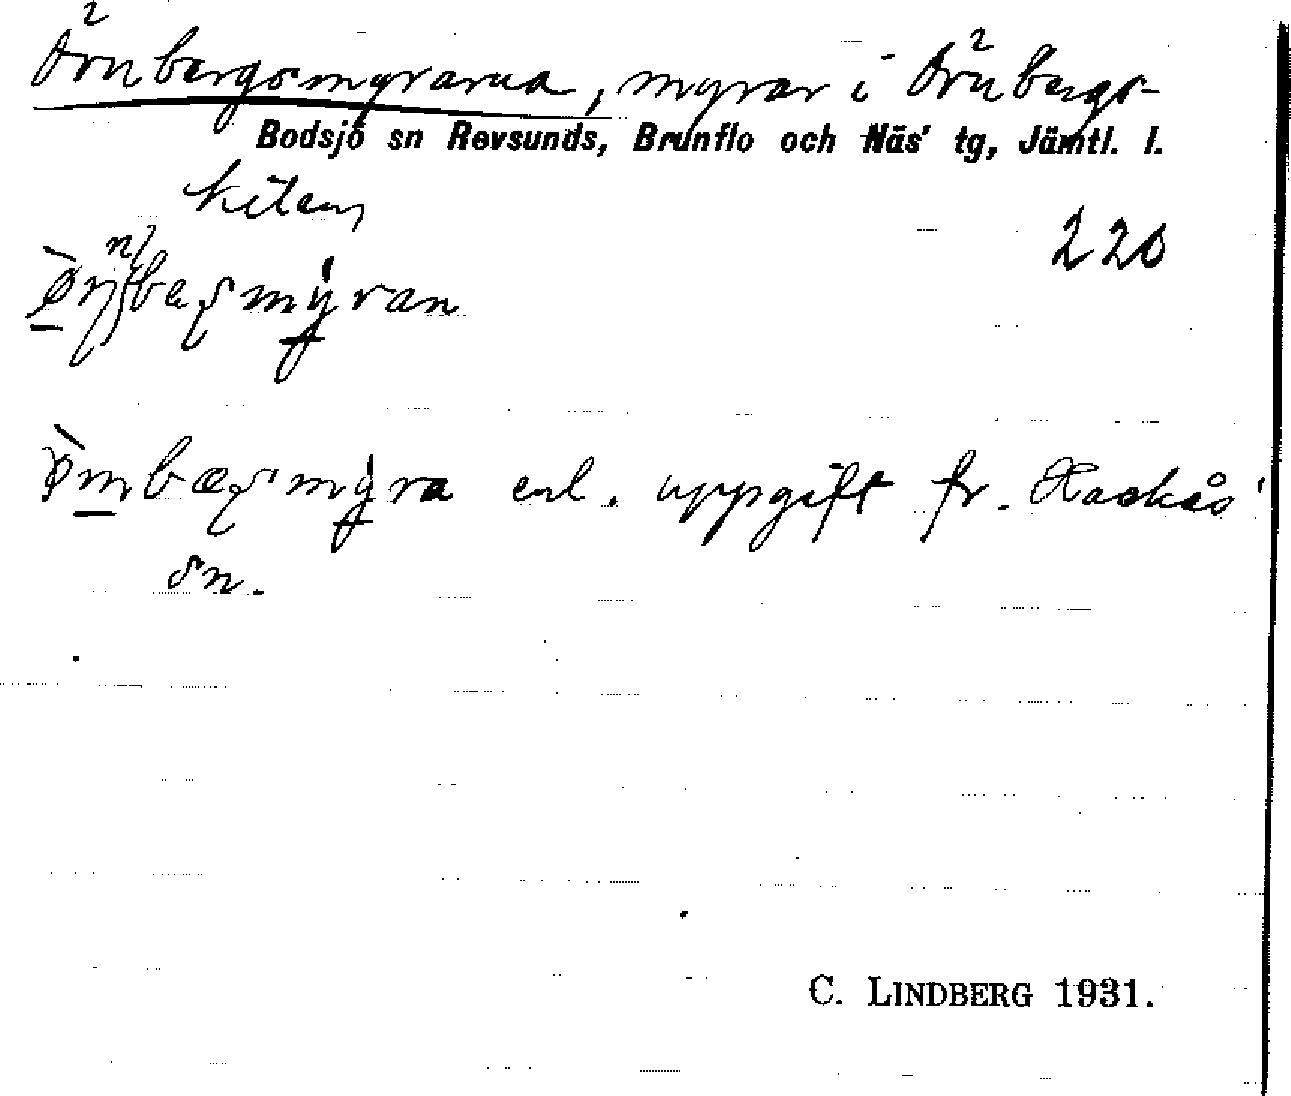 Örnbergsmyrarna, myrar i Örnbergs-
Bodsjö sn Revsunds, Brunflo och Näs' tg, Jämtl. l.
kilen,
220
myran
enl. uppgift fr. Hackås'
sn.
C. LINDBERG 1931.